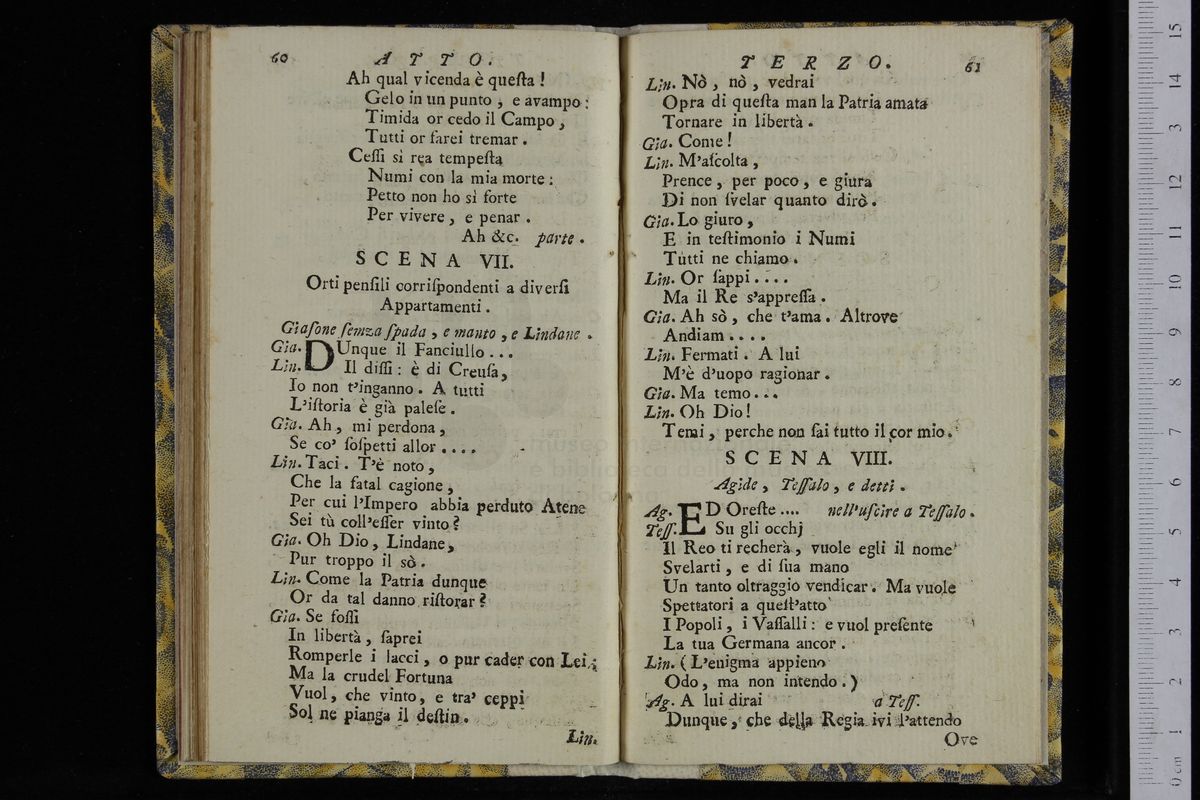 60 ATTO.
Ah qual vicenda è queſta!
Gelo in un punto, e avampo:
Timida or cedo il Campo,
Tutti or farei tremar.
Ceſſi sì rea tempeſta
Numi con la mia morte:
Petto non ho sì forte
Per vivere, e penar.
Ah &c. parte.
SCENA VII.
Orti penſili corriſpondenti a diverſi
Appartamenti.
Giaſone ſemza ſpada, e manto, e Lindane.
Gia. DUnque il Fanciullo...
Lin. Il diſſi: è di Creuſa,
Io non t'inganno. A tutti
L'iſtoria è già paleſe.
Gia. Ah, mi perdona,
Se co' ſoſpetti allor....
Lin. Taci. T'è noto,
Che la fatal cagione,
Per cui l'Impero abbia perduto Atene
Sei tù coll'eſſer vinto?
Gia. Oh Dio, Lindane,
Pur troppo il sò.
Lin. Come la Patria dunque
Or da tal danno riſtorar?
Gia. Se foſſi
In libertà, ſaprei
Romperle i lacci, o pur cader con Lei;
Ma la crudel Fortuna
Vuol, che vinto, e tra' ceppi
Sol ne pianga il deſtin.
Lin.
TERZO. 61
Lin. Nò, nò, vedrai
Opra di queſta man la Patria amata
Tornare in libertà.
Gia. Come!
Lin. M'aſcolta,
Prence, per poco, e giura
Di non ſvelar quanto dirò.
Gia. Lo giuro,
E in teſtimonio i Numi
Tutti ne chiamo.
Lin. Or ſappi....
Ma il Re s'appreſſa.
Gia. Ah sò, che t'ama. Altrove
Andiam....
Lin. Fermati. A lui
M'è d'uopo ragionar.
Gia. Ma temo...
Lin. Oh Dio!
Temi, perche non ſai tutto il cor mio.
SCENA VIII.
Agide, Teſſalo, e detti.
Ag. ED Oreſte.... nell'uſcire a Teſſalo.
Teſſ. Su gli occhj
Il Reo ti recherà, vuole egli il nome
Svelarti, e di ſua mano
Un tanto oltraggio vendicar. Ma vuole
Spettatori a queſt'atto
I Popoli, i Vaſſalli: e vuol preſente
La tua Germana ancor.
Lin. (L'enigma appieno
Odo, ma non intendo.)
Ag. A lui dirai a Teſſ.
Dunque, che della Regia ivi l'attendo
Ove